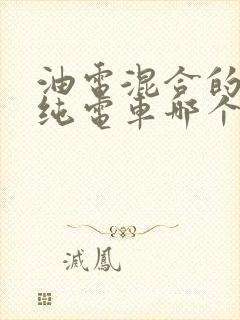 油電混合的
纯電車那个
滅鳳